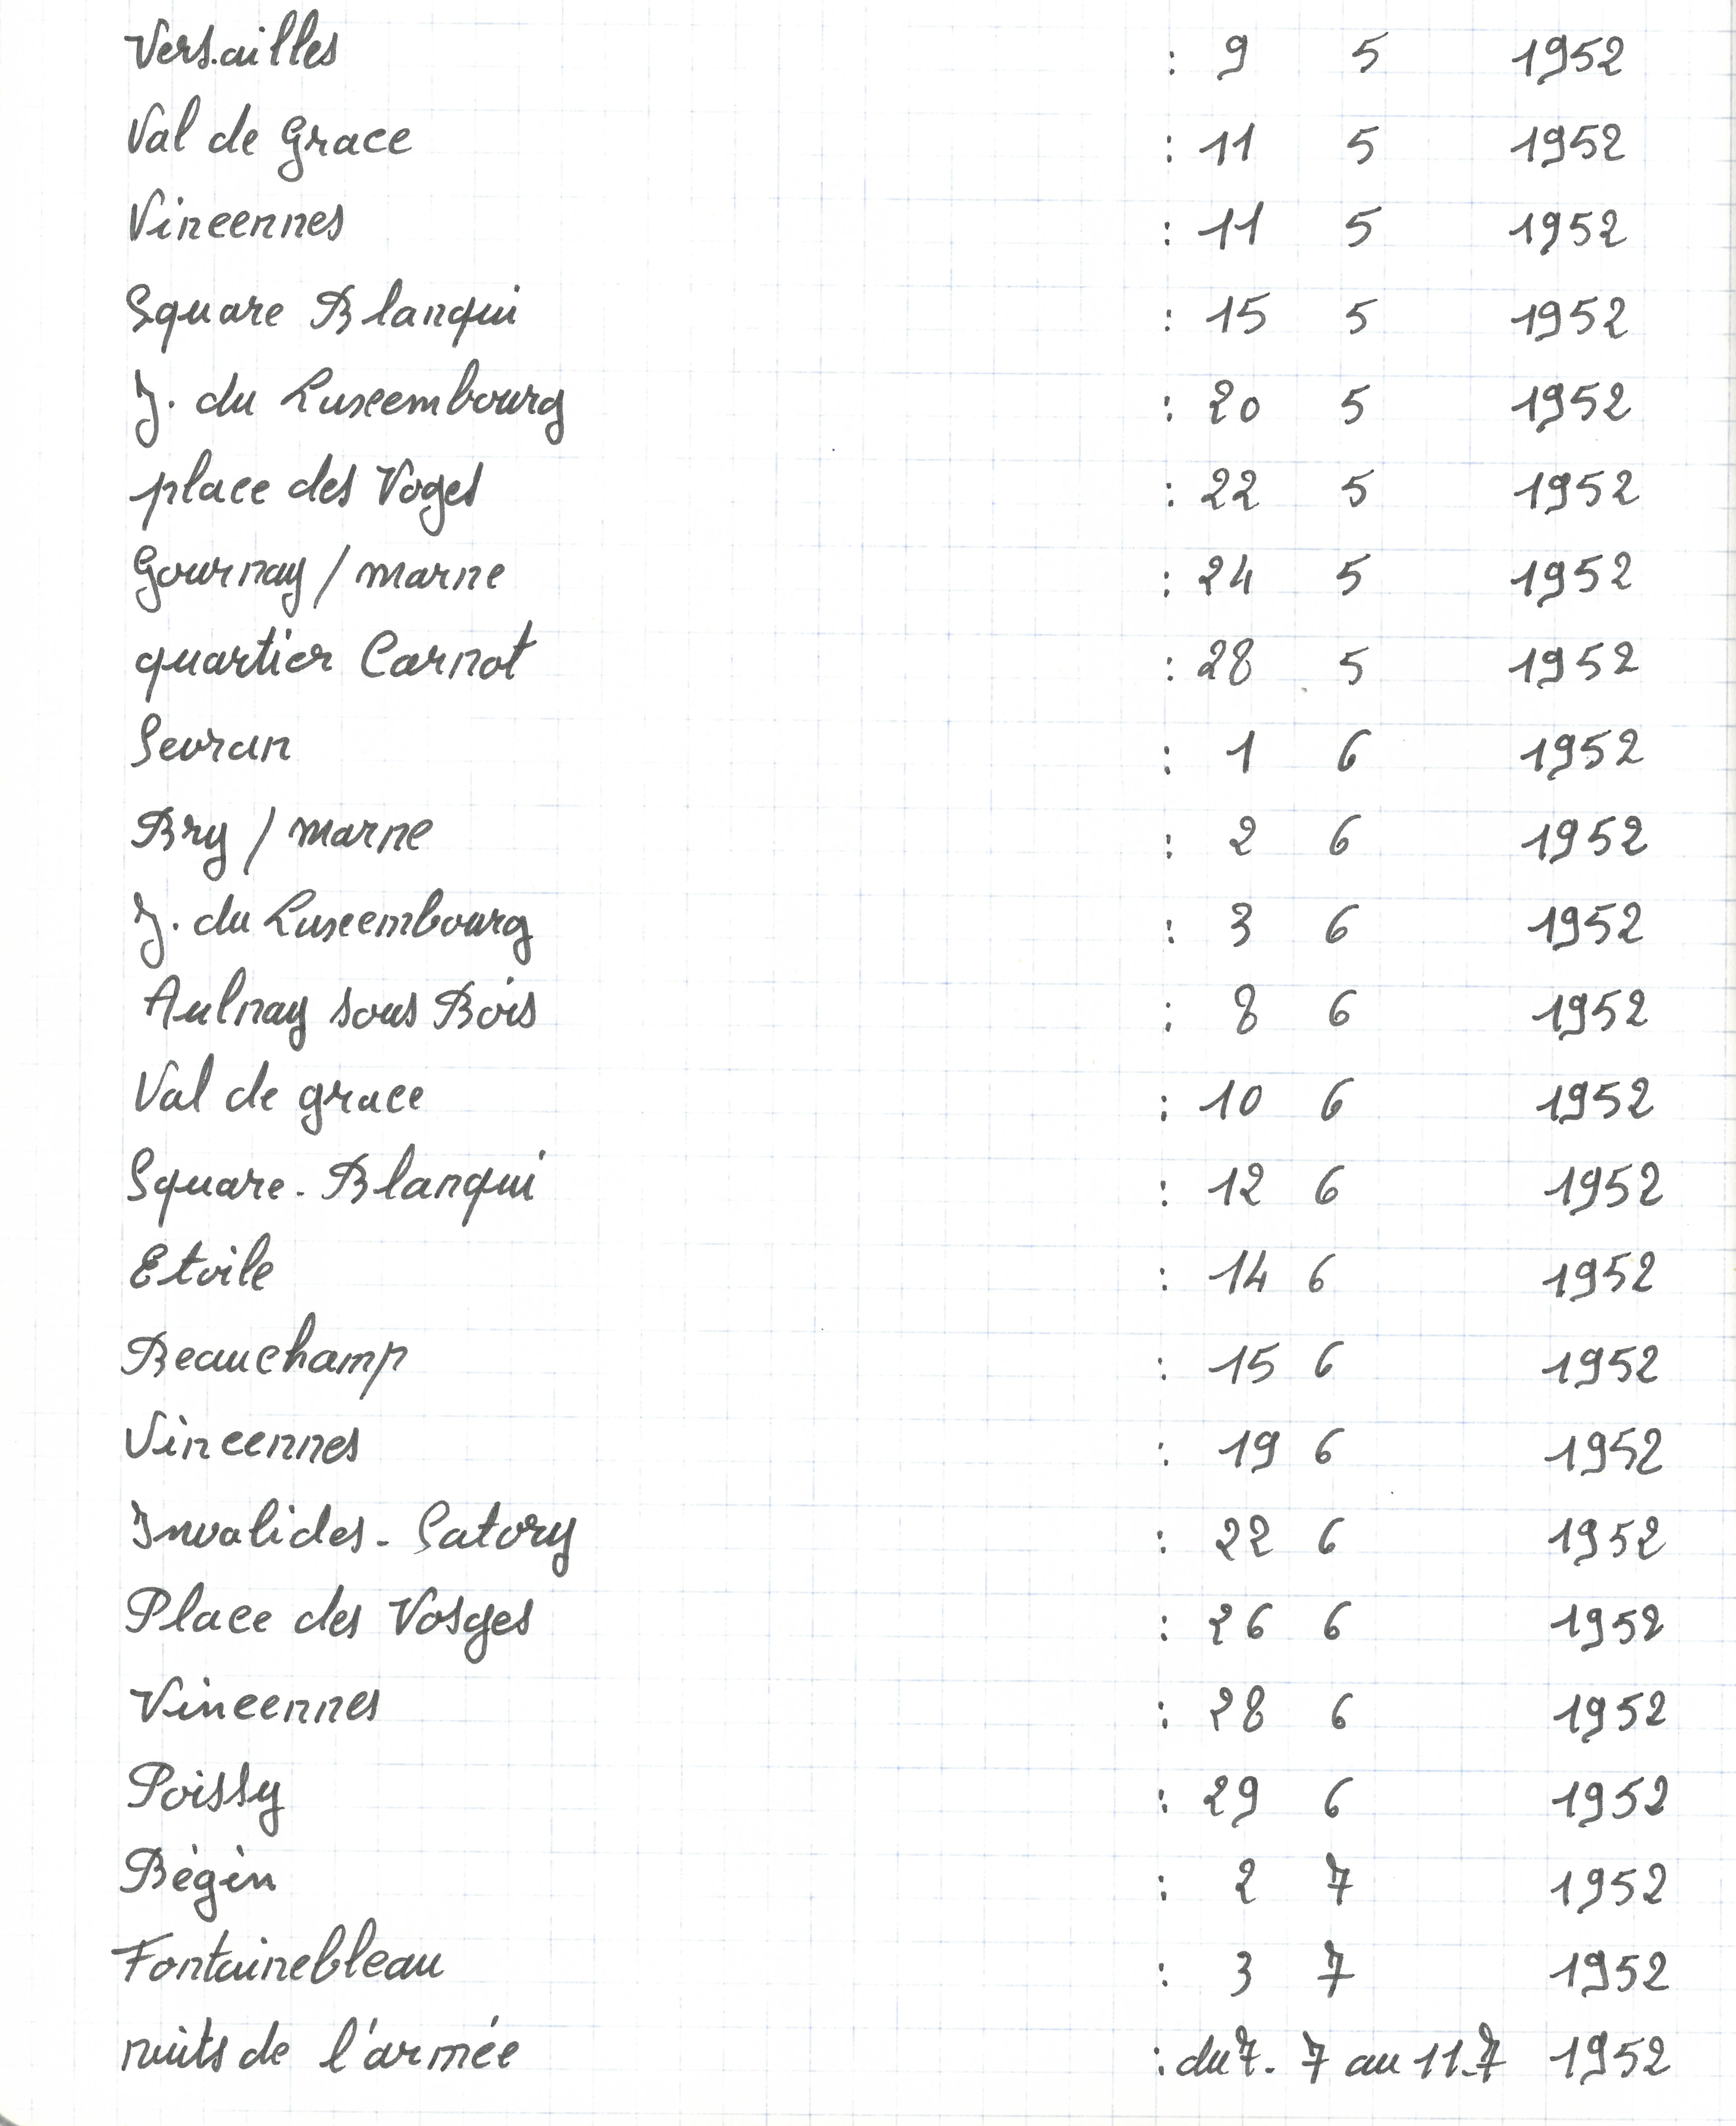 Versailles : 9 5 1952
Val de Grace : 11 5 1952
Vincennes : 11 5 1952
Square Blanqui : 15 5 1952
J. du Luxembourg : 20 5 1952
place des Voges : 22 5 1952
Gournay / marne : 24 5 1952
quartier Carnot : 28 5 1952
Sevran : 1 6 1952
Bry / marne : 2 6 1952
J. du Luxembourg : 3 6 1952
Aulnay sous Bois : 8 6 1952
Val de grace : 10 6 1952
Square. Blanqui : 12 6 1952
Etoile : 14 6 1952
Beauchamp : 15 6 1952
Vincennes : 19 6 1952
Invalides. Satory : 22 6 1952
Place des Vosges : 26 6 1952
Vincennes : 28 6 1952
Poissy : 29 6 1952
Bégin : 2 7 1952
Fontainebleau : 3 7 1952
nuits de l'armée : du 7. 7 au 11.7 1952